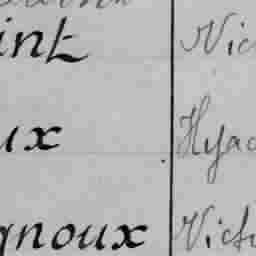 int Nic
ux Hyac
gnoux Victo